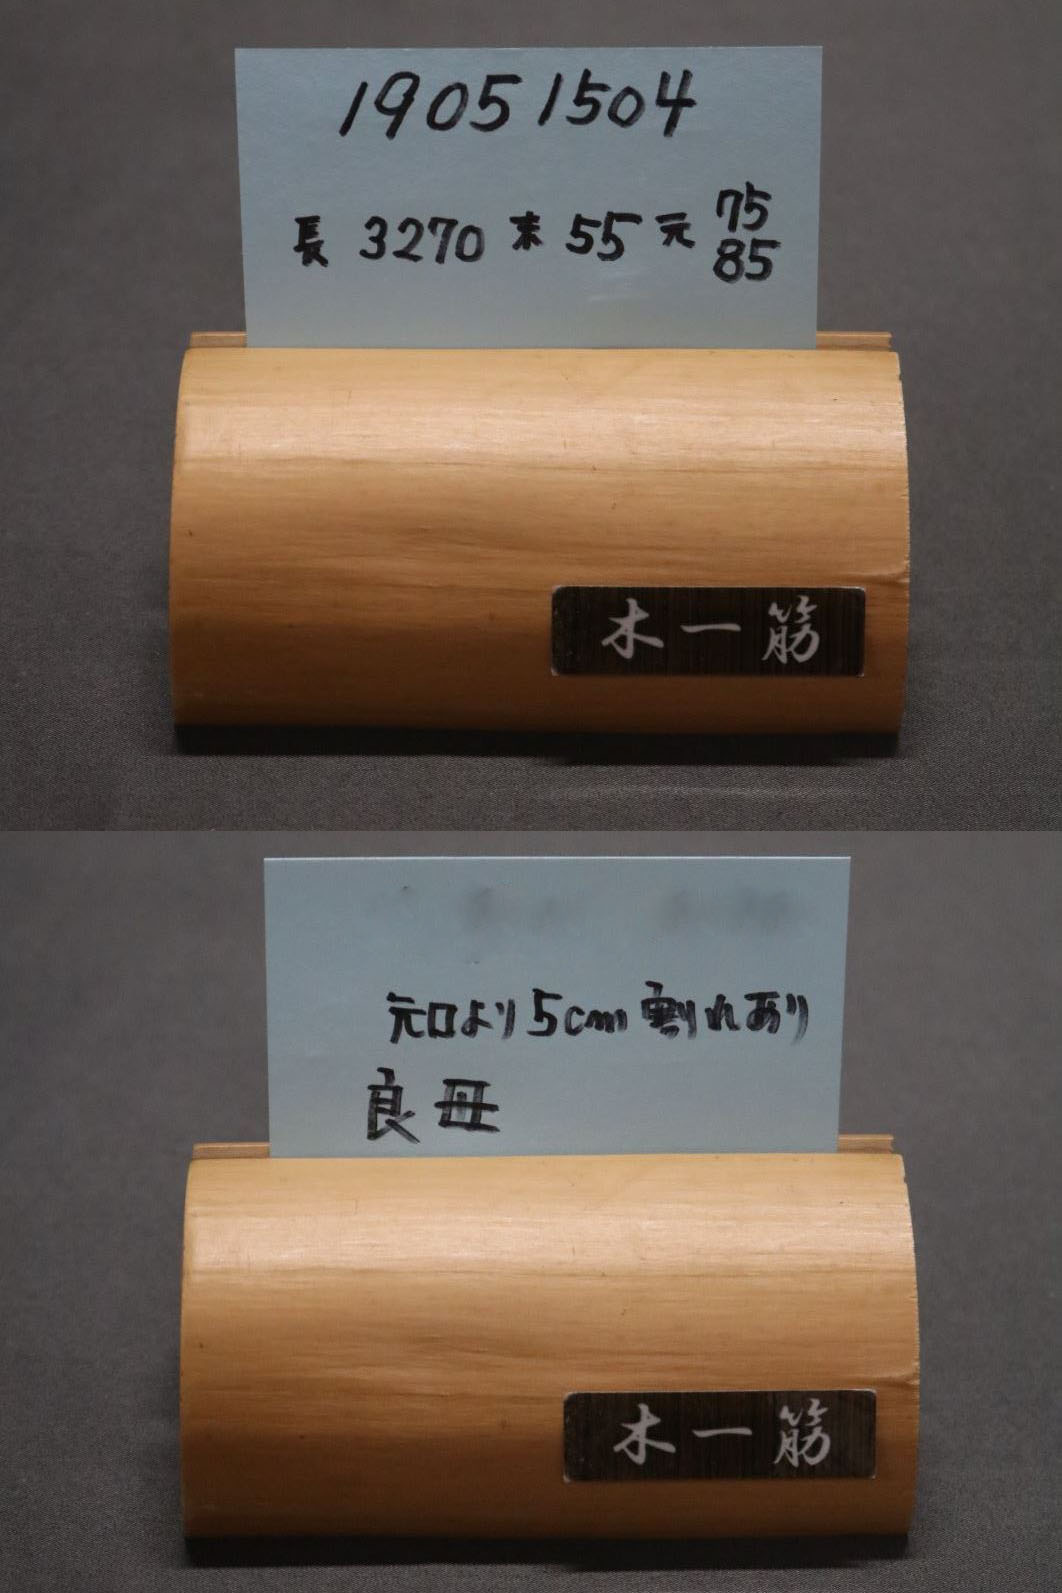 19051504
長 3270 末 55 元 75
85
木一筋
元口より5cm割れあり
良母
木一筋